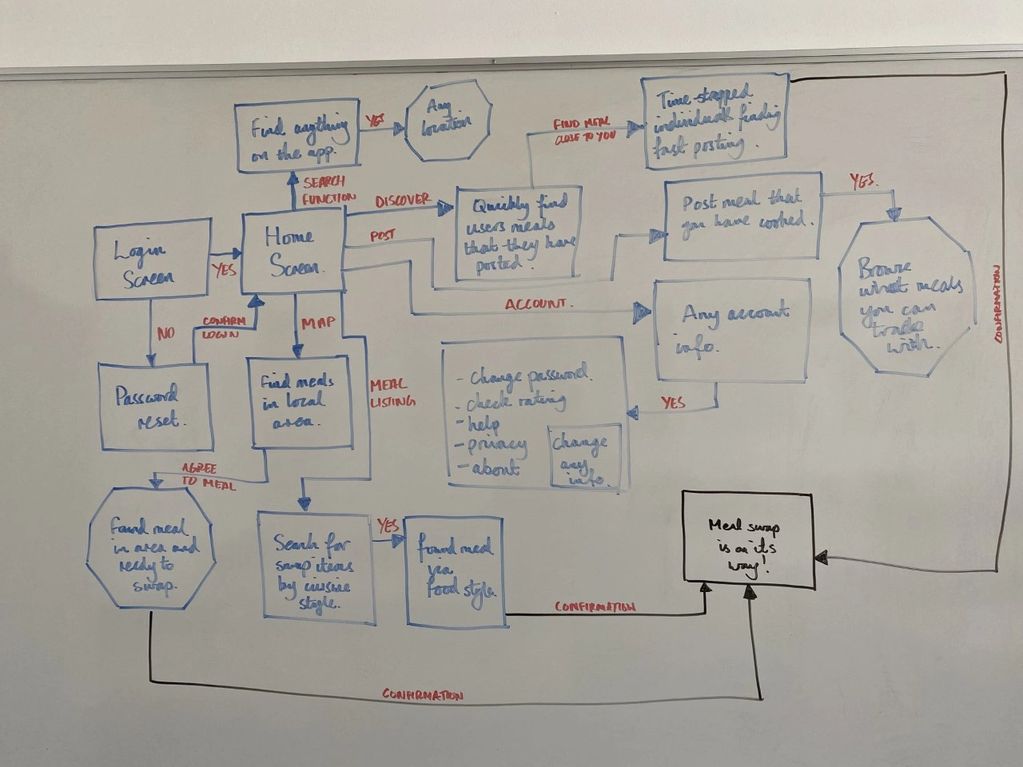 Find anything
on the app.
YES
Any
location
FIND MEAL
CLOSE TO YOU
Time-strapped
individuals finding
fast posting.
SEARCH
FUNCTION
DISCOVER
Quickly find
users meals
that they have
posted.
POST
Post meal that
you have cooked.
YES.
Browse
what meals
you can
trade
with.
CONFIRMATION
Login
Screen
YES
Home
Screen.
ACCOUNT.
Any account
info.
YES
NO
CONFIRM
LOGIN
MAP
MEAL
LISTING
Password
reset.
Find meals
in local
area.
- Change password.
- check rating
- help
- privacy
- about
Change
any
info.
AGREE
TO MEAL
Found meal
in area and
ready to
swap.
Search for
swap items
by cuisine
style.
YES
found meal
via
food style.
CONFIRMATION
Meal swap
is on its
way!
CONFIRMATION